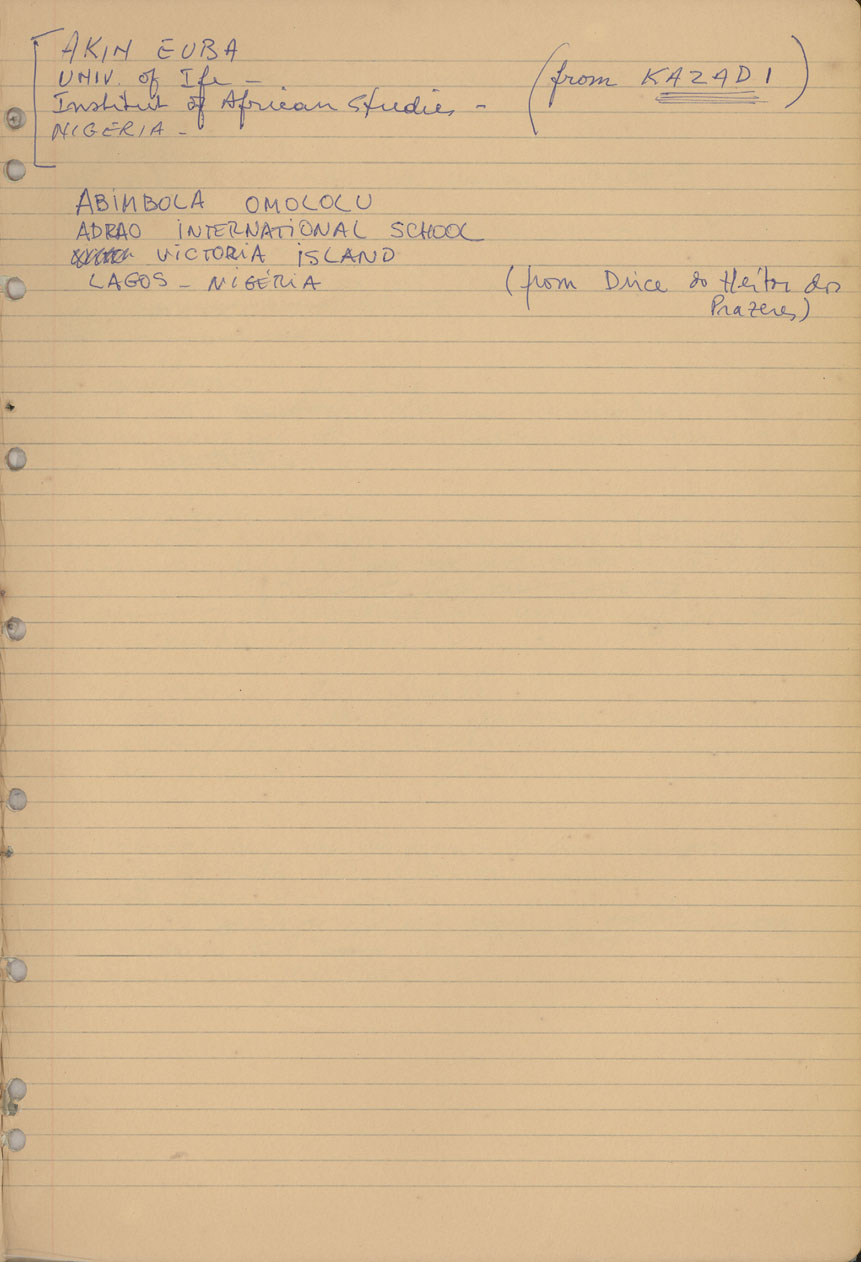 AKIN EUBA
UNIV. of Ife - (from KAZADI)
Institut of African Studies -
NIGERIA -
ABIMBOLA OMOLOLU
ADRAO INTERNATIONAL SCHOOL
VICTORIA ISLAND
LAGOS - NIGÉRIA (from Dirce do Heitor dos
Prazeres)